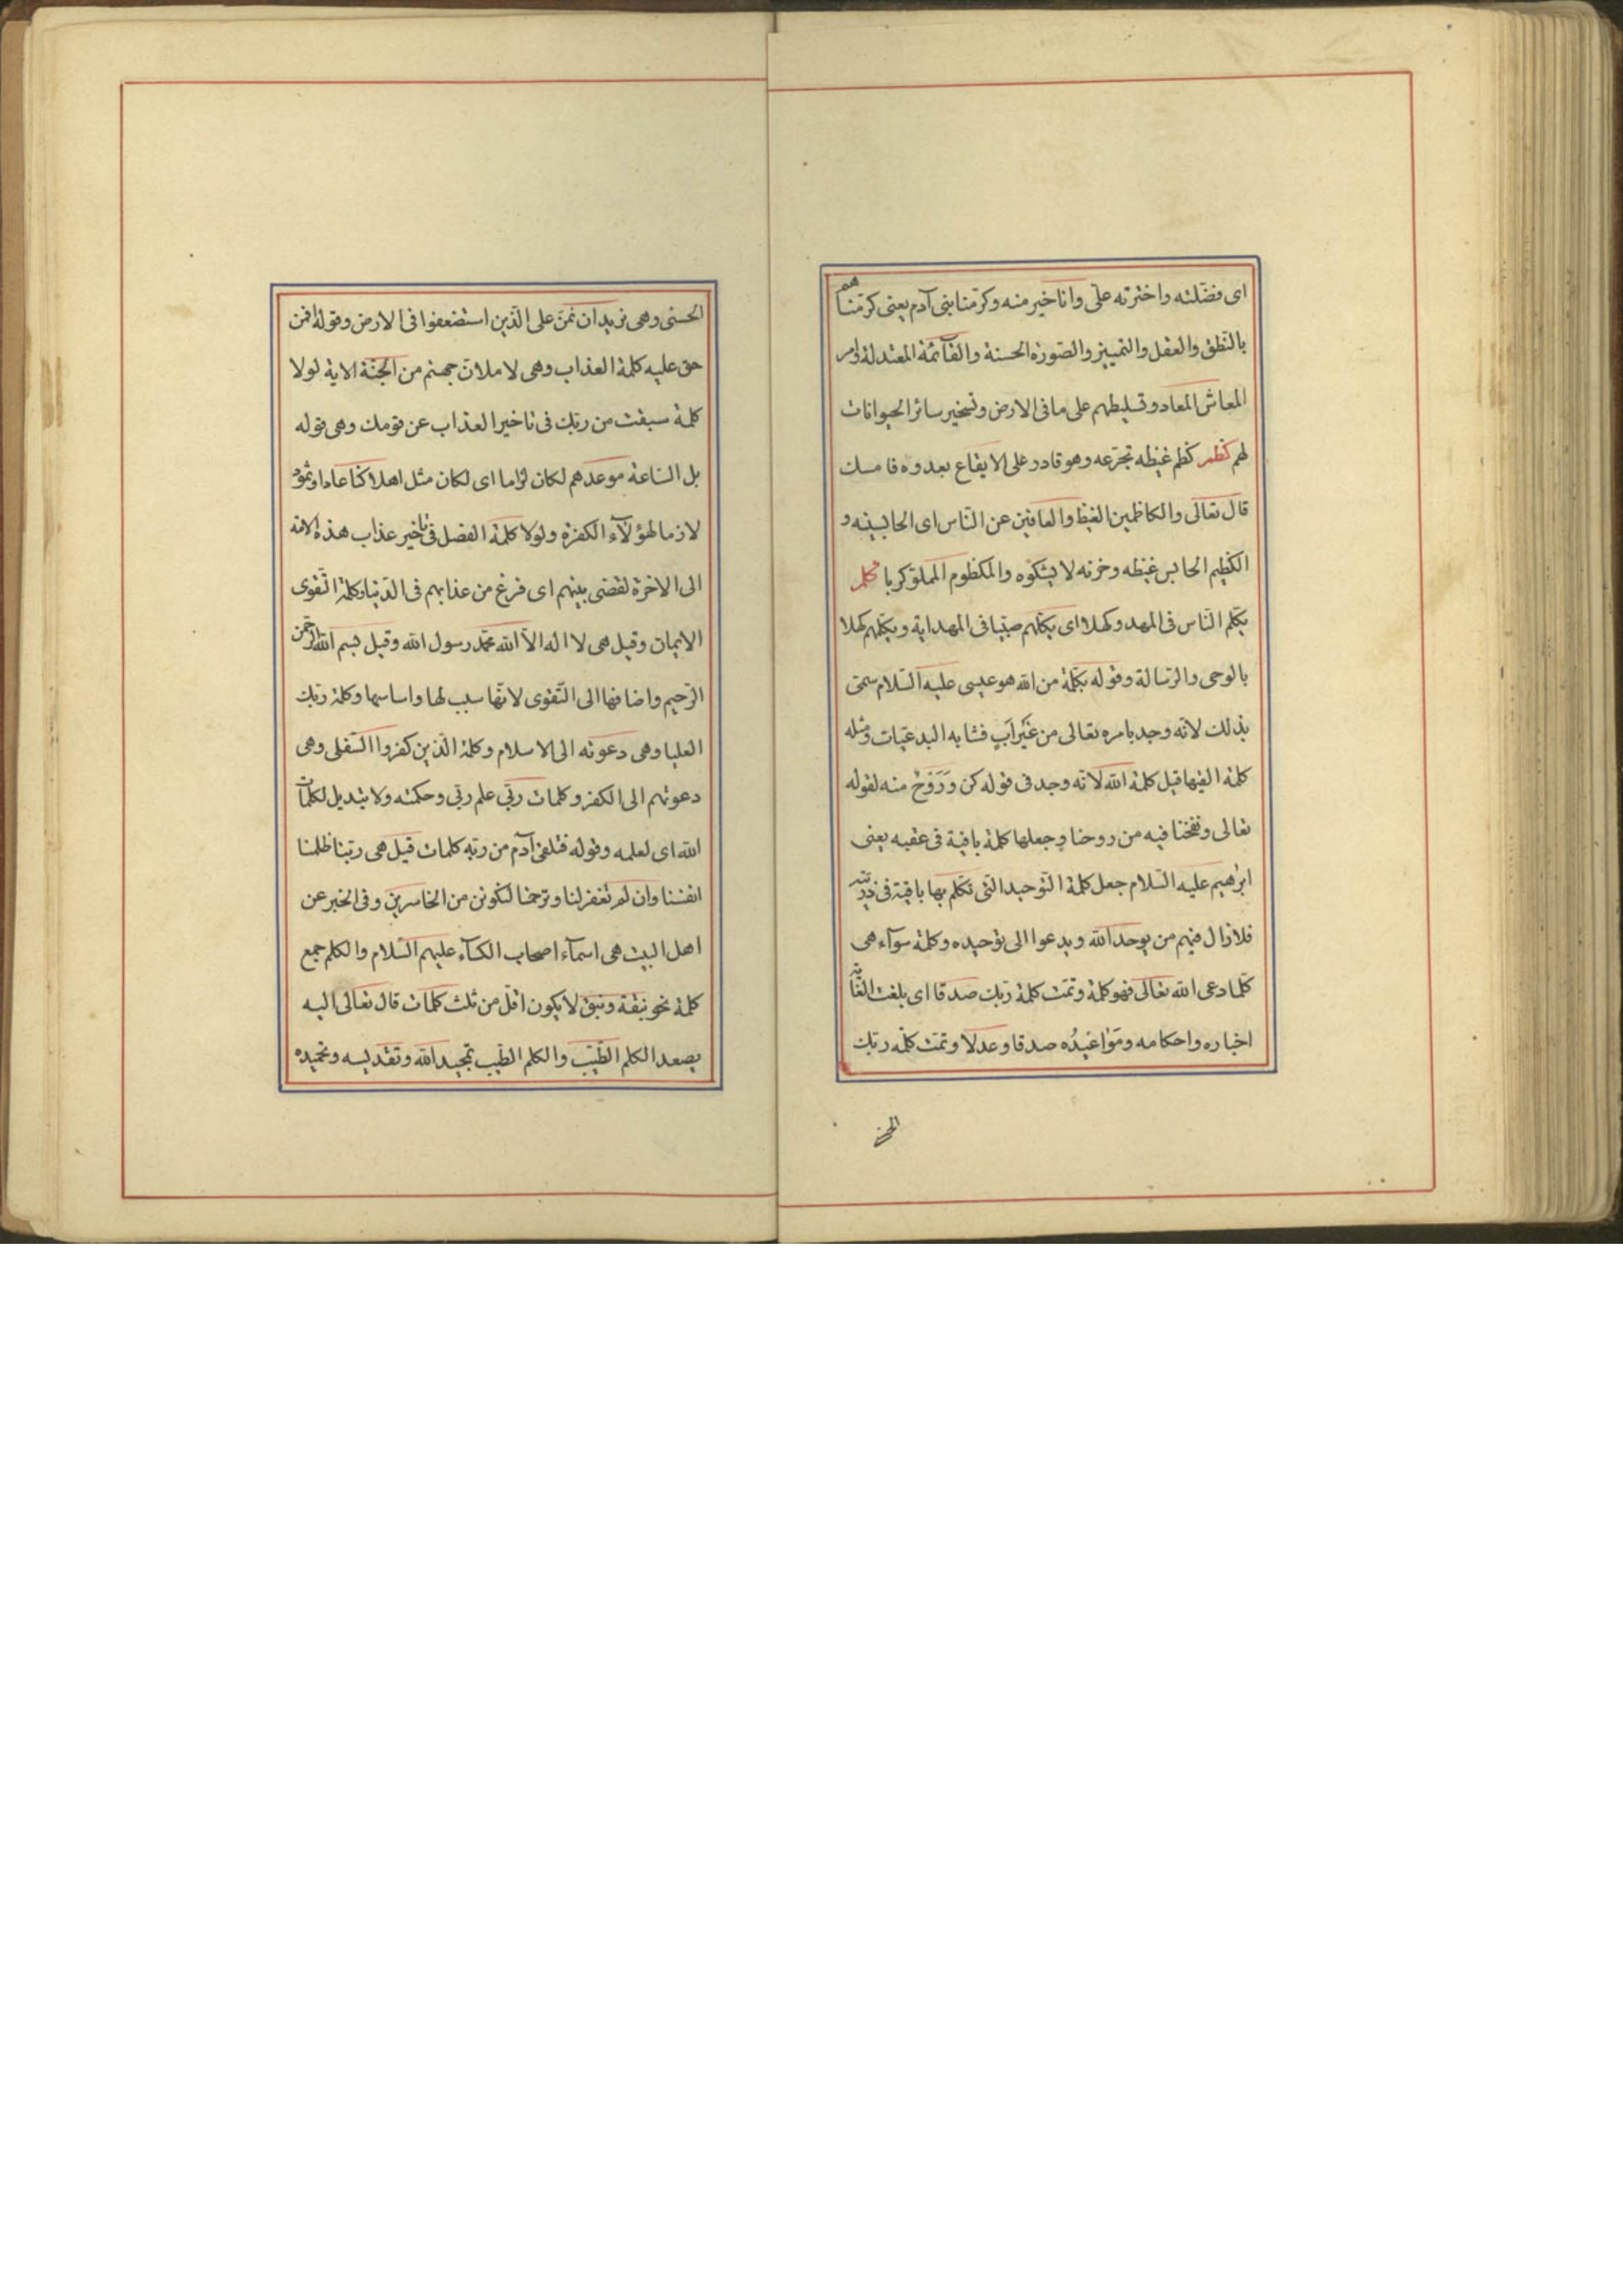 اى فضّلته واخترته علىّ وانا خير منه وكرّمنا بنى آدم يعنى كرّمناهم
بالنطق والعقل والتمييز والصّورة الحسنة والقآئمة المعتدلة وامر
المعاش المعاد وتسليطهم على ما فى الارض وتسخير سائر الحيوانات
لهم كظم كظم غيظه تجرّعه وهو قادر على الايقاع بعدوه فامسك
قال تعالى والكاظمين الغيظ والعافين عن النّاس اى الحابسينه و
الكظيم الحابس غيظه وحزنه لا يشكوه والمكظوم المملوّ كربا كلم
يكلّم النّاس فى المهد وكهلا اى يكلّمهم صبيّا فى المهد اية ويكلّمهم كهلا
بالوحى والرّسالة وقوله بكلمة من الله هو عيسى عليه السّلام سمّى
بذلك لانّه وجد بامره تعالى من غير اب فشابه البدعيّات ومثله
كلمة القيها قيل كلمة الله لانّه وجد فى قوله كن وروح منه لقوله
تعالى ونفخنا فيه من روحنا وجعلها كلمة باقية فى عقبه يعنى
ابرهيم عليه السّلام جعل كلمة التّوحيد التى تكلّم بها باقية فى ذريّته
فلا زال فيهم من يوحد الله ويدعوا الى توحيده وكلمة سوآء هى
كلّما دعى الله تعالى فهو كلمة وتمّت كلمة ربّك صدقا اى بلغت الغاية
اخباره واحكامه ومواعيده صدقا وعدلا وتمّت كلمه ربّك
الحسنى وهى نريد ان نمنّ على الّذين استضعفوا فى الارض وقوله افمن
حق عليه كلمة العذاب وهى لاملانّ جهنم من الجنّة الاية لولا
كلمة سبقت من ربّك فى تاخير العذاب عن قومك وهى قوله
بل السّاعة موعدهم لكان لزاما اى لكان مثل اهلاكنا عادا وثمود
لازما لهؤلآء الكفرة ولولا كلمة الفصل فى تاخير عذاب هذه الامة
الى الاخرة لقضى بينهم اى فرغ من عذابهم فى الدّنيا وكلمة التّقوى
الايمان وقيل هى لا اله الاّ الله محمّد رسول الله وقيل بسم الله الرّحمن
الرّحيم واضافها الى التّقوى لانّها سبب لها واساسها وكلمة ربّك
العليا وهى دعوته الى الاسلام وكلمة الّذين كفروا السّفلى وهى
دعوتهم الى الكفر وكلمات ربّى علم ربّى وحكمته ولا تبديل لكلمات
الله اى لعلمه وقوله فتلقى آدم من ربّه كلمات قيل هى ربّنا ظلمنا
انفسنا وان لم تغفر لنا وترحمنا لنكونن من الخاسرين وفى الخبر عن
اهل البيت هى اسمآء اصحاب الكسآء عليهم السّلام والكلم جمع
كلمة نحو نبقة ونبق لا يكون اقلّ من ثلث كلمات قال تعالى اليه
يصعد الكلم الطّيّب والكلم الطّيب تمجيد الله وتقديسه وتحميده